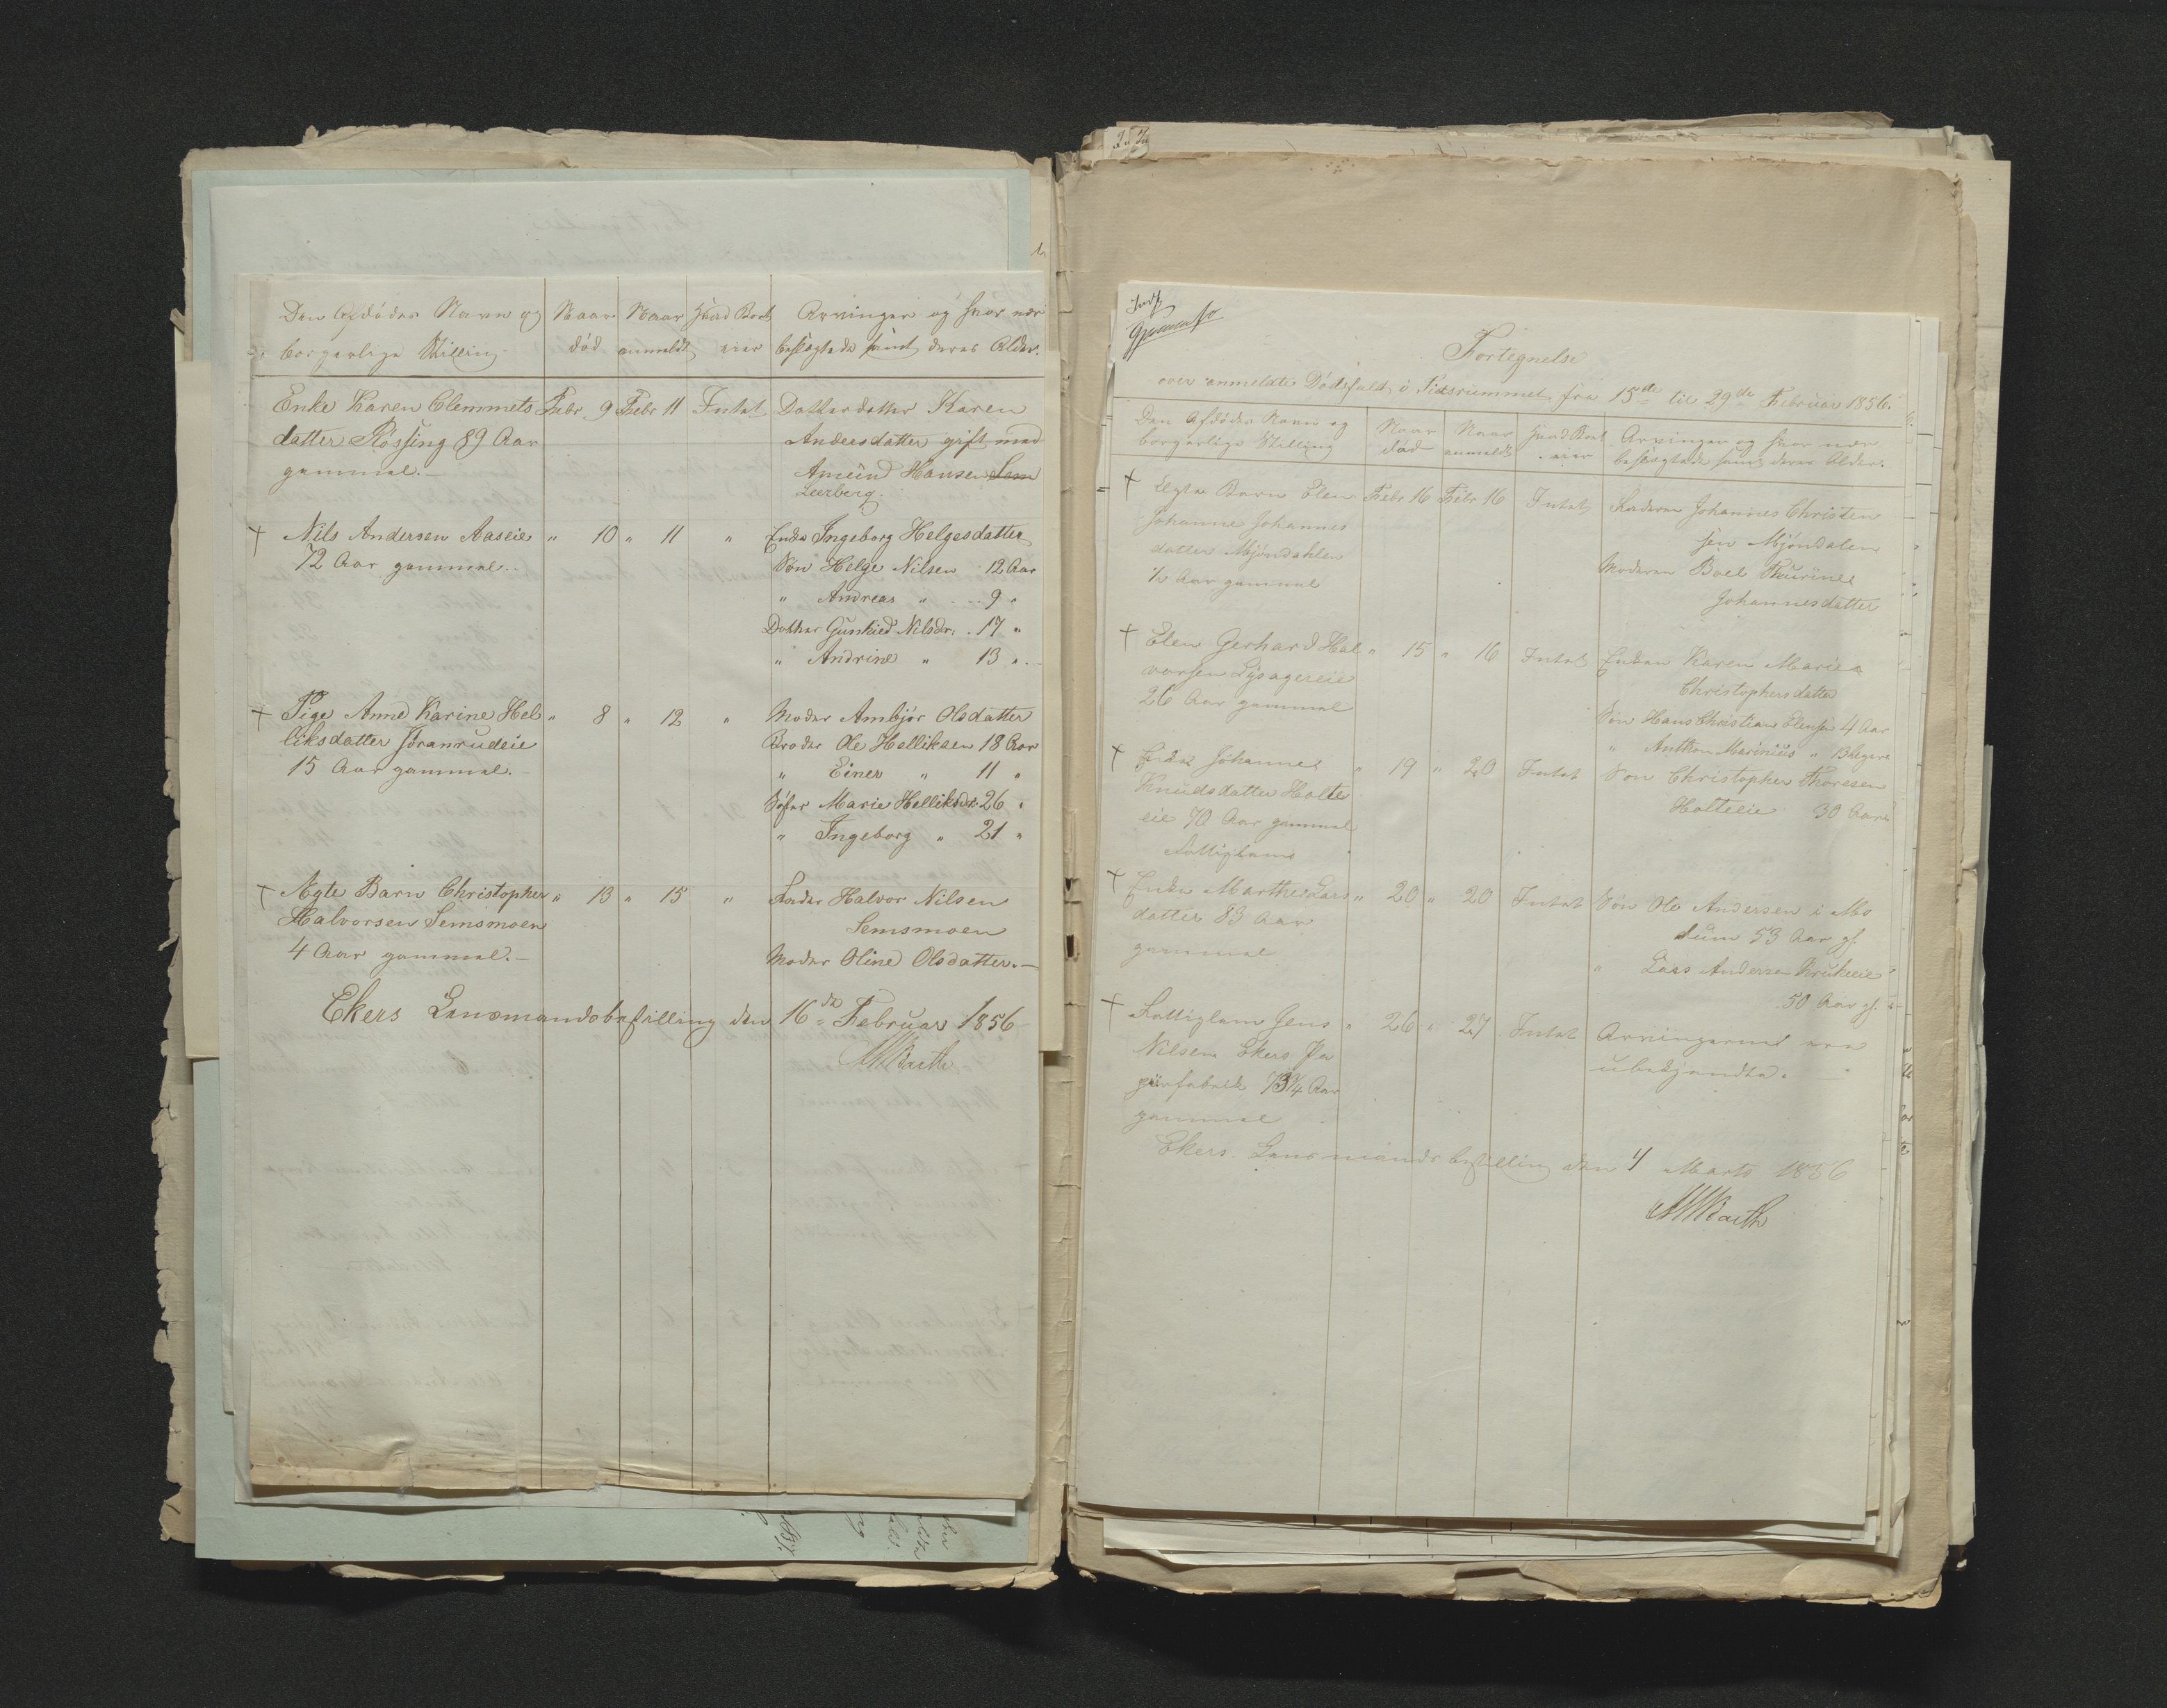 Den Afdødes Navn og borgerlige Stilling
Naar død
Naar anmeldt
Hvad Boet eier
Arvinger og hvor nær beslægtede samt deres Alder.
Enke Karen Clemmets Febr. 9 Febr 11 Intet Datterdatter Karen
datter Røssing 89 Aar Andersdatter gift med
gammel. Amund Hansen
Lerberg.
† Nils Andersen Aaseie " 10 " 11 " Enke Ingeborg Helgesdatter
72 Aar gammel. Søn Helge Nilsen 12 Aar
" Andreas " 9 "
Datter Gunhild Nilsdr. 17 "
" Andrine " 13 "
† Pige Anne Karine Hel " 8 " 12 " Moder Ambjør Olsdatter
liksdatter Stranrudeie Broder Ole Helliksen 18 Aar
15 Aar gammel. " Einer " 11 "
Søster Marie Helliksdr 26 "
" Ingeborg " 21 "
† Ægte Barn Christopher " 13 " 15 " Fader Halvor Nilsen
Halvorsen Semsmoen Semsmoen
4 Aar gammel. Moder Oline Olsdatter.
Ekers Lensmandsbestilling den 16de Februar 1856
Fortegnelse
over anmeldte Dødsfald i Tidsrummet fra 15de til 29de Februar 1856.
Den Afdødes Navn og borgerlige Stilling
Naar død
Naar anmeldt
Hvad Boet eier
Arvinger og hvor nær beslægtede samt deres Alder.
† Ægte Barn Elen Febr 16 Febr 16 Intet Faderen Johannes Christen
Johanne Johannes sen Mjøndalen
datter Mjøndahlen Moderen Boel
½ Aar gammel Johannesdatter
† Elen Gerhard Hal " 15 " 16 Intet Enken Karen Marie
vorsen Lysagereie Christophersdatter
26 Aar gammel Søn Hans Christian Elensen 4 Aar
" Anthon Marinius " 13 Uger
† Enke Johanne " 19 " 20 Intet Søn Christopher Thoresen
Knudsdatter Holte Holteeie 30 Aar
eie 70 Aar gammel
Fattiglem
† Enke Marthe Lars " 20 " 20 Intet Søn Ole Andersen i Mo
datter 83 Aar dum 53 Aar gl.
gammel " Lars Andersen
50 Aar gl.
† Fattiglem Jens " 26 " 27 Intet Arvingerne ere
Nilsen Ekers Pa ubekjendte.
pirfabrik 73¼ Aar
gammel
Ekers Lensmandsbestilling den 4 Marts 1856